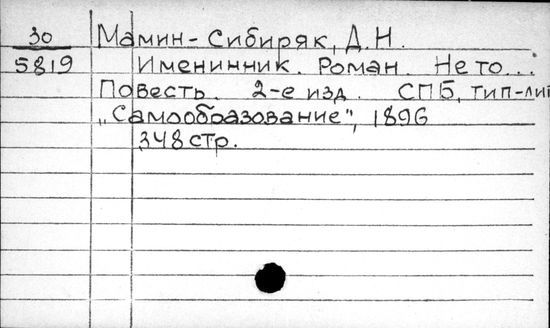 30 Мамин-Сибиряк, Д.Н.
5819 Именинник. Роман. Не то...
Повесть. 2-е изд. СПБ, тип-лит
„Самообразование", 1896
348 стр.